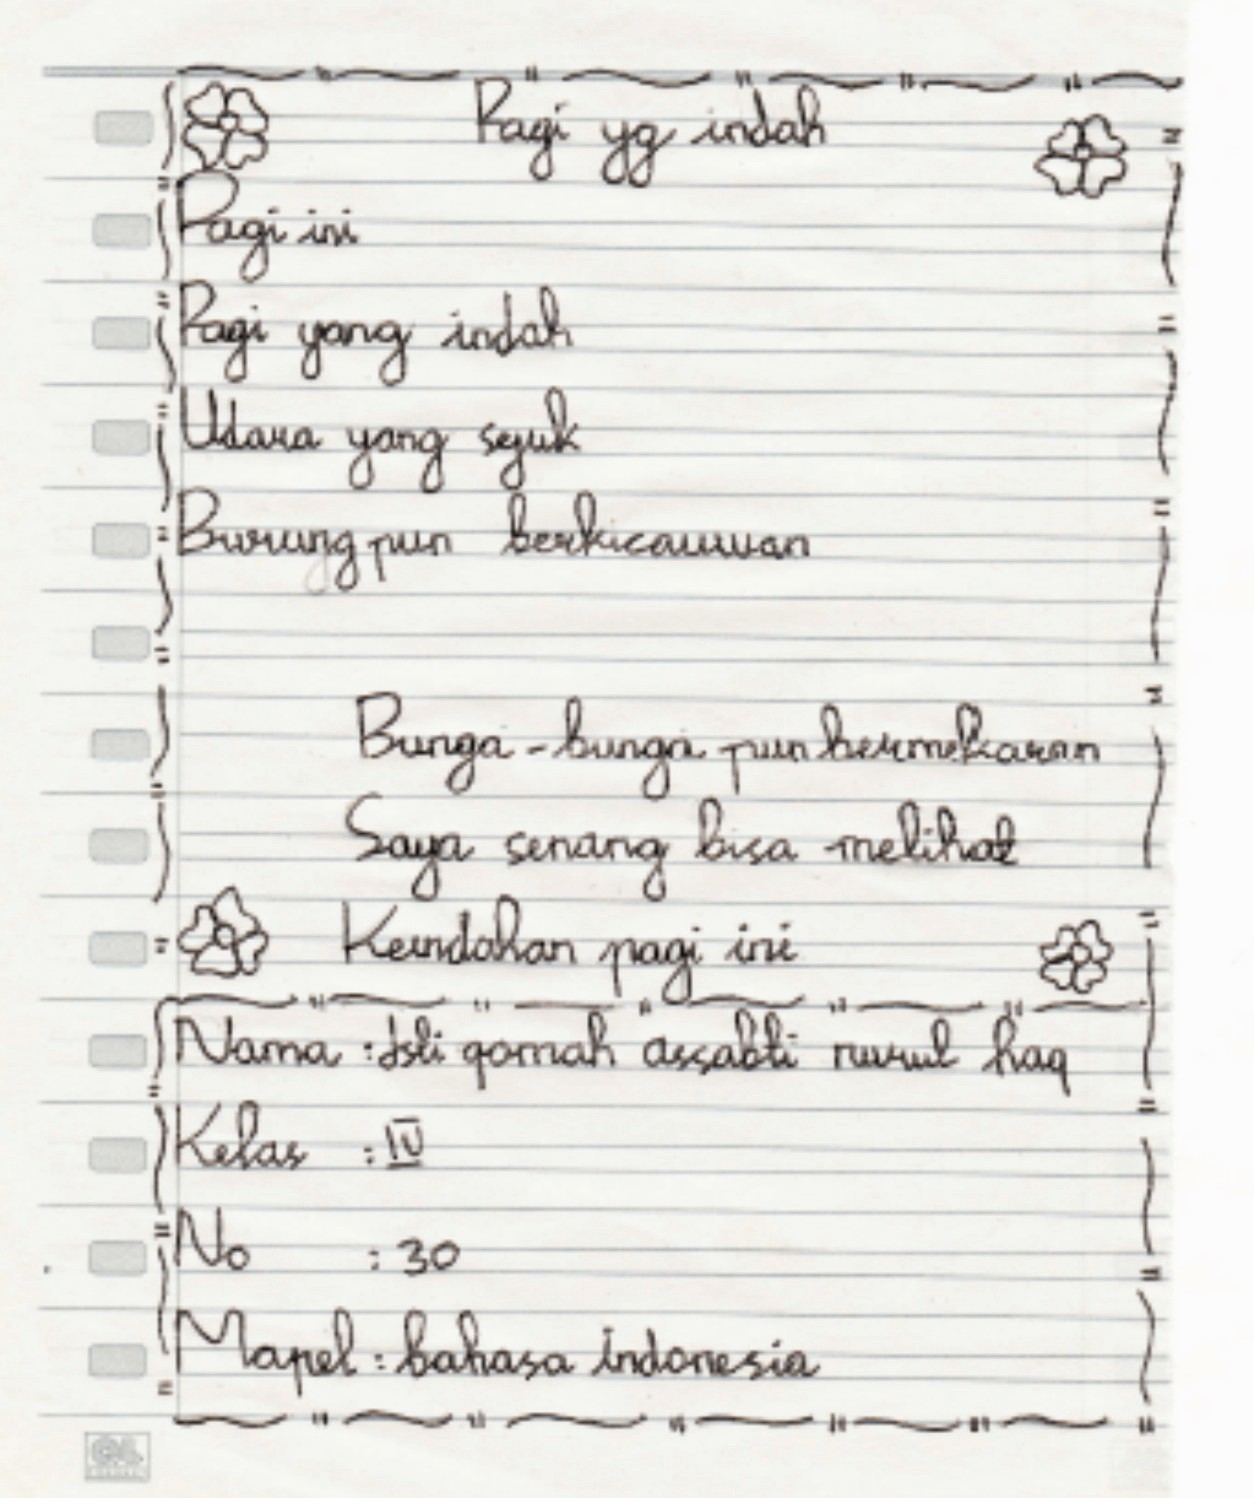 Pagi yg indah
Pagi ini
Pagi yang indah
Udara yang sejuk
Burung pun berkicauuan
Bunga-bunga pun bermekaran
Saya senang bisa melihat
Keindahan pagi ini
Nama : Isti qomah assabti nurul haq
Kelas : IV
No : 30
Mapel : bahasa indonesia